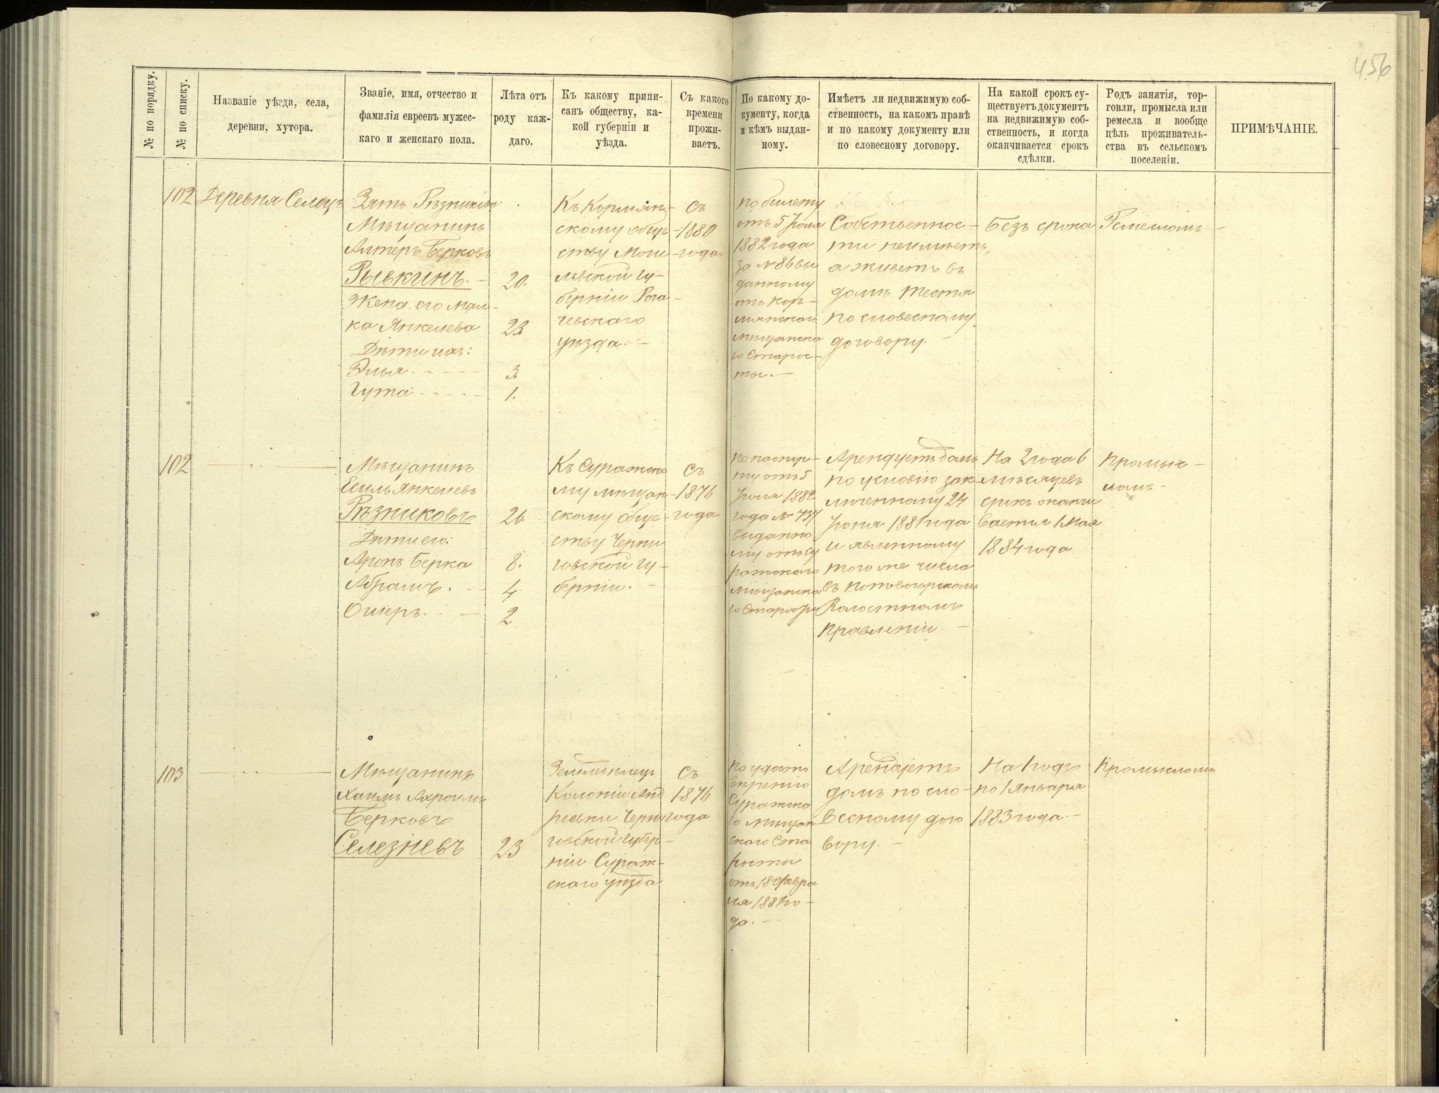 456
№ по порядку.
№ по списку.
Названіе уѣзда, села,
деревни, хутора.
Званіе, имя, отчество и
фамилія евреевъ мужес-
каго и женскаго пола.
Лѣта отъ
роду каж-
даго.
Къ какому припи-
санъ обществу, ка-
кой губерніи и
уѣзда.
Съ какого
времени
прожи-
ваетъ.
По какому до-
кументу, когда
и кѣмъ выдан-
ному.
Имѣетъ ли недвижимую соб-
ственность, на какомъ правѣ
и по какому документу или
по словесному договору.
На какой срокъ су-
ществуетъ документъ
на недвижимую соб-
ственность, и когда
оканчивается срокъ
сдѣлки.
Родъ занятія, тор-
говли, промысла или
ремесла и вообще
цѣль проживатель-
ства въ сельскомъ
поселеніи.
ПРИМѢЧАНІЕ.
102
Деревня Селецъ
Зять Рѣзникова
Мѣщанинъ
Алтеръ Берковъ
Рывкинъ. 20.
Жена его Мал-
ка Янкелева 23
Дѣти ихъ:
Элья 3
Гута 1.
Къ Кормян-
скому общес-
ству Моги-
левской гу-
берніи Рога-
чевскаго
уѣзда.
Съ
1880
года
по билету
отъ 5 Іюля
1882 года
за № 86 вы
данному
отъ Кор-
мянской
мѣщанска
го Старос-
ты.
Собственнос-
ти неимѣетъ,
а живетъ въ
домѣ тестя
по словесному
договору.
Безъ срока
Ремесломъ
102
Мѣщанинъ
Есиль Янкелевъ
Рѣзниковъ 26
Дѣти его:
Аронъ Берка 8.
Абрамъ. 4
Ошеръ. 2
Къ Суражско
му мѣщан-
скому общес-
ству Черни
говской гу-
берніи.
Съ
1876
года
по паспор-
ту отъ 5
Іюля 1882
года №
выданно
му отъ Су
ражского
мѣщанска
го Старосты
Арендуетъ домъ
по условію зак-
люченному 24
Іюня 1881 года
и явленному
того же числа
въ Поповогорскомъ
Волостномъ
Правленіи
На 2 года 6
мѣсяцевъ
срокъ оканчи
вается 1 Мая
1884 года
Промыс-
ломъ
103
Мѣщанинъ
Хаимъ Ахроимъ
Берковъ
Селезневъ 23
Землевладец
Колоніи Анд
реевки Черни
говской Губер-
ніи Сураж-
скаго уѣзда
Съ
1876
года
По удосто
вѣренію
Суражска
го мѣщан
скаго Ста
росты
отъ 18 Февра
ля 1881 го-
да.
Арендуетъ
домъ по сло-
весному дого
вору.
На 1 годъ
по 1 Января
1883 года.
Промысломъ